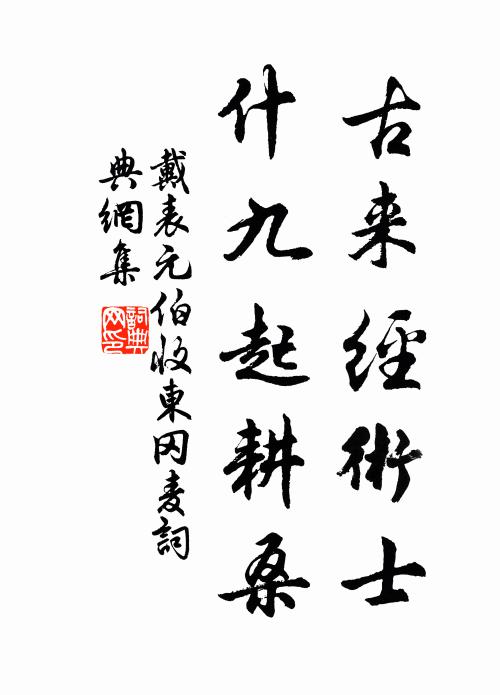 古来經術士
什九起耕桑
戴表元伯收東冈麦詞
典網集
詞典网印